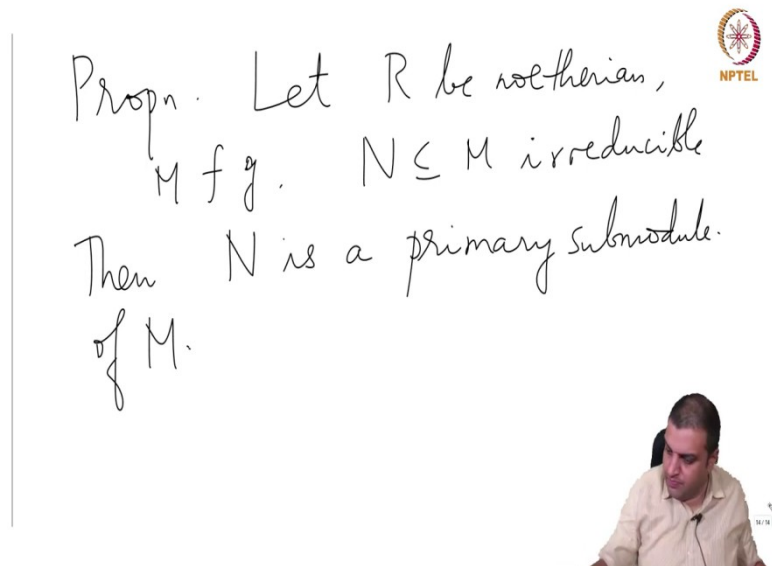 Propn. Let R be noetherian,
M f g. N ⊆ M irreducible
Then N is a primary submodule.
of M.
NPTEL